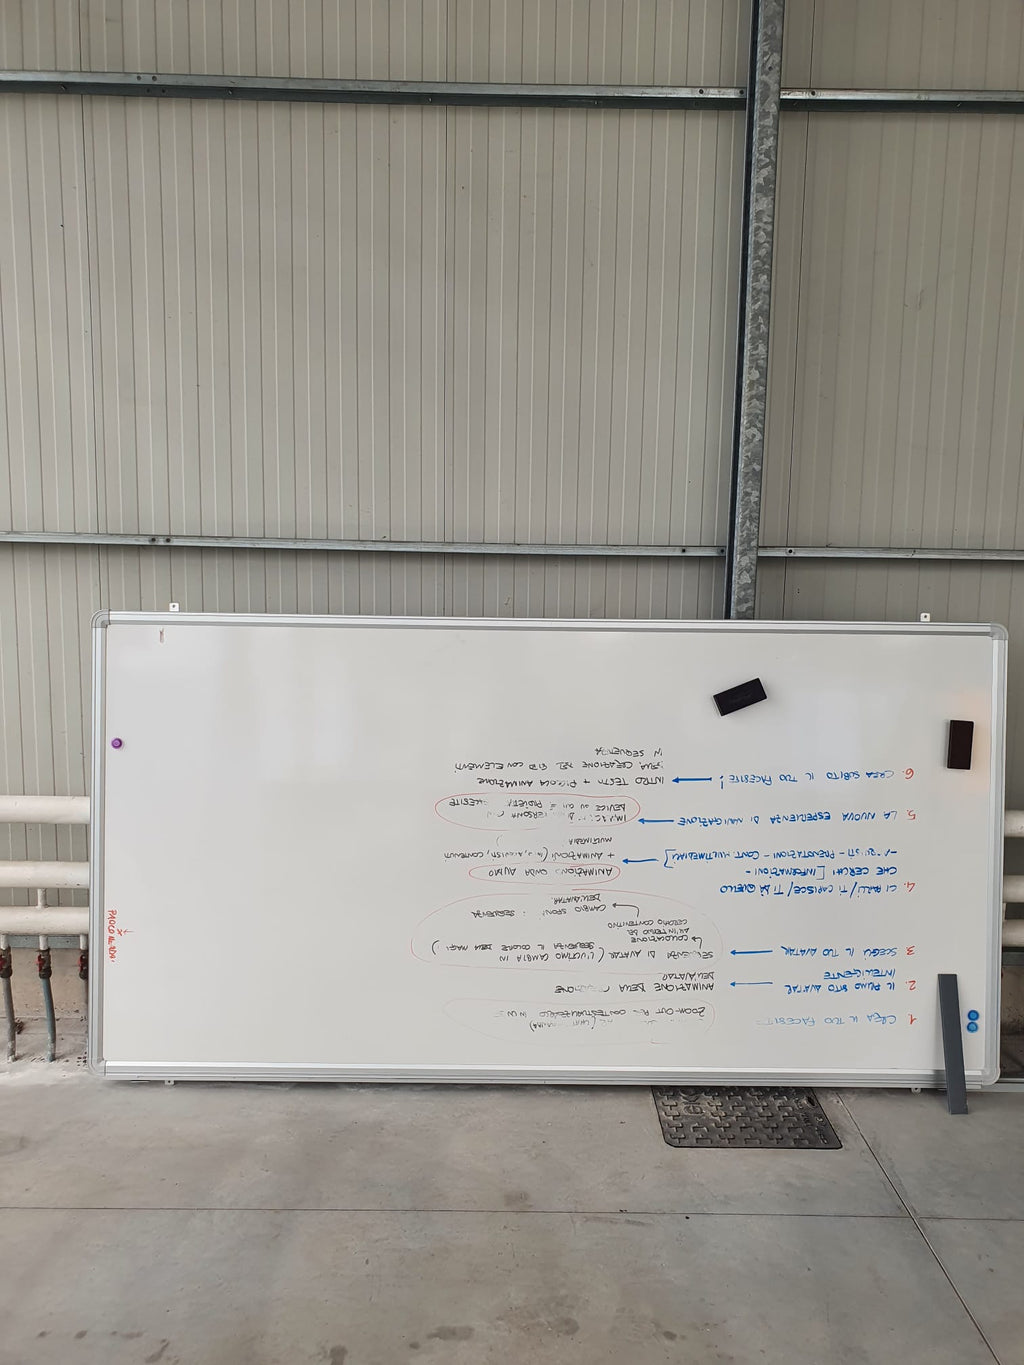 1. CREA IL TUO FACESITE
ZOOM-OUT
CONTESTUALIZZATO IN
2. IL PRIMO SITO AVATAR
INTELLIGENTE
ANIMAZIONE DELLA
DELL'AVATAR
3. SCEGLI IL TUO AVATAR
SEQUENZA DI AVATAR (L'ULTIMO CAMBIA IN
SEQUENZA IL COLORE DELLA
COLORAZIONE
ALL'INTERNO DEL
CERCHIO CONTENITIVO
CAMBIO SFONDI SEQUENZA
DELL'AVATAR
4. CI PARLI/TI CAPISCE/TI DÀ QUELLO
CHE CERCHI [INFORMAZIONI -
ACQUISTI - PRENOTAZIONI - CONT. MULTIMEDIALI]
ANIMAZIONE ONDA AUDIO
+ ANIMAZIONI ACQUISTI, CONTENUTI
MULTIMEDIA )
5. LA NUOVA ESPERIENZA DI NAVIGAZIONE
DI PERSONA CON
DEVICE SU CUI È PROIETTA FACESITE
6. CREA SUBITO IL TUO FACESITE!
INTRO TESTO + PICCOLA ANIMAZIONE
SULLA CREAZIONE DEL SITO CON ELEMENTI
IN SEQUENZA
PAOLO